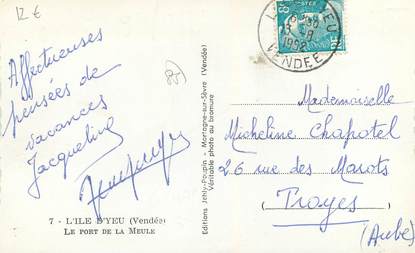 12 €
Affectueuses
pensées de
vacances
Jacqueline
7 - L'ILE D'YEU (Vendée)
LE PORT DE LA MEULE
Editions Jehly-Poupin - Mortagne-sur-Sèvre (Vendée)
Véritable photo au bromure
1952
VENDÉE
Mademoiselle
Micheline Chapotel
26 rue des Marots
Troyes
(Aube)